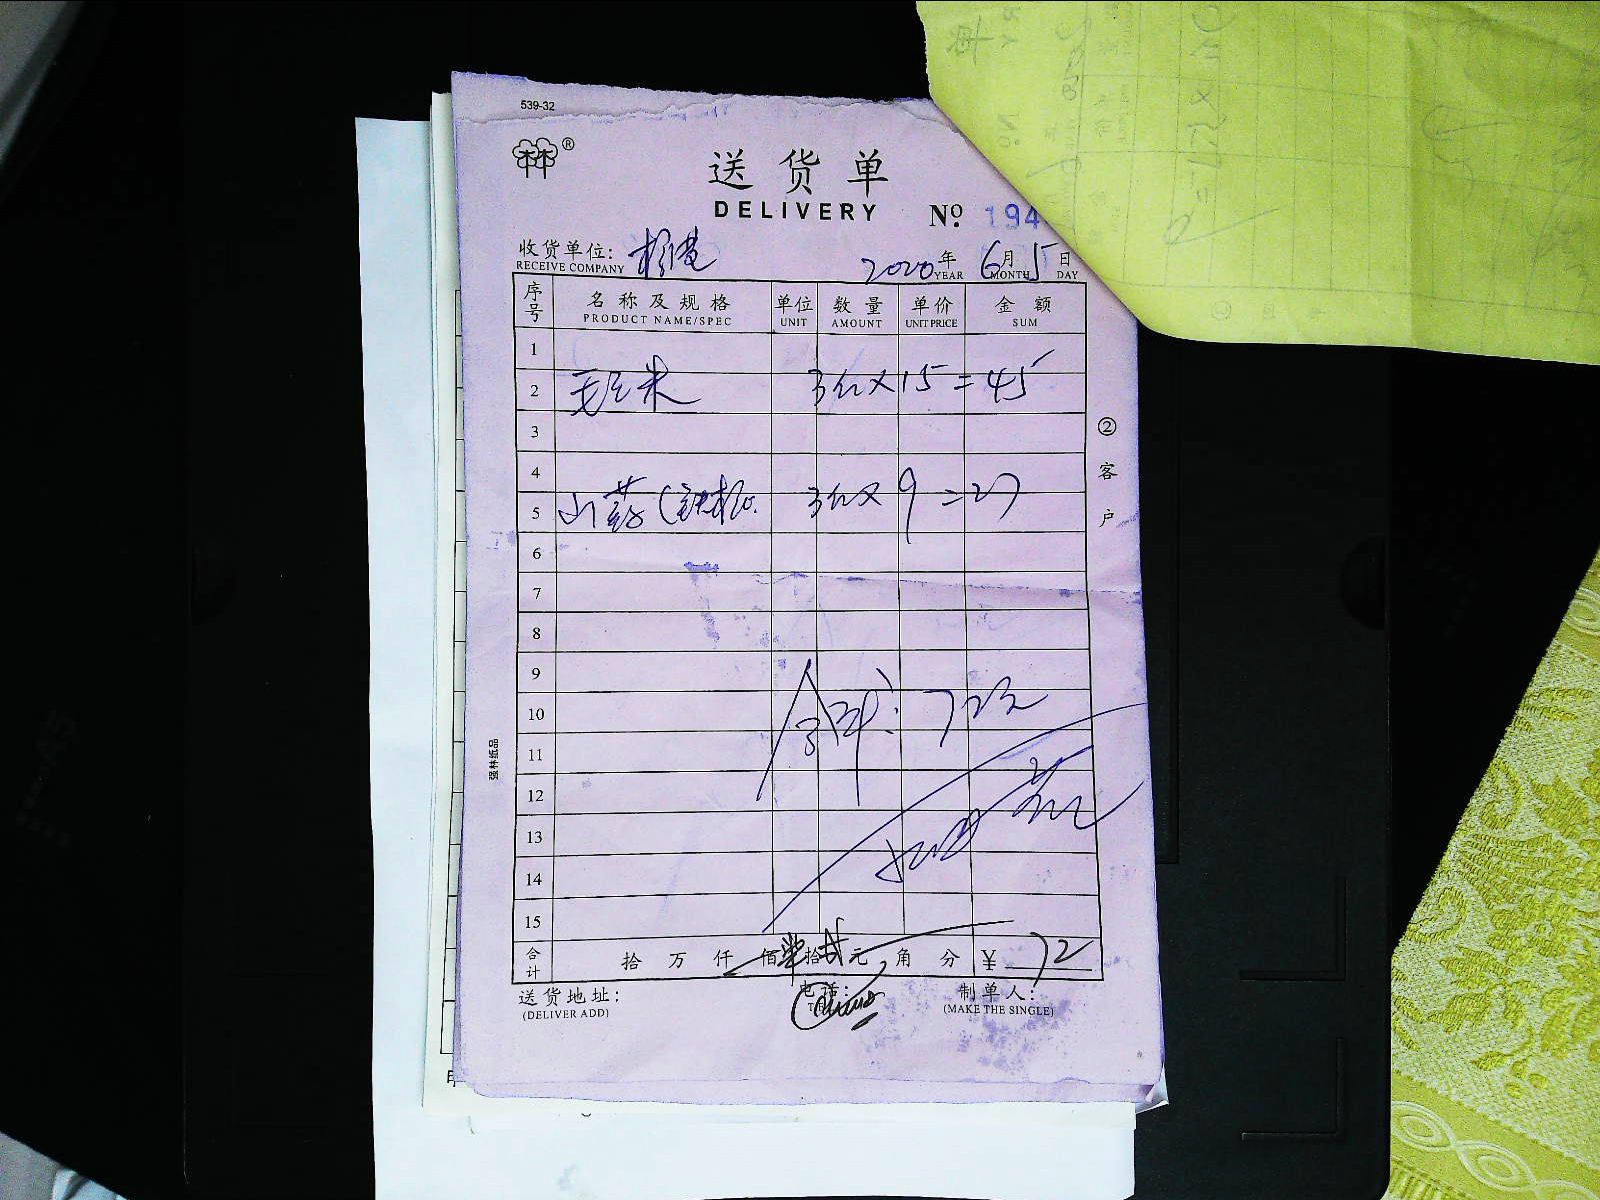 539-32
林®
送货单
DELIVERY No. 194
收货单位: 2020年 6月 5日
RECEIVE COMPANY YEAR MONTH DAY
序号 名称及规格 单位 数量 单价 金额
PRODUCT NAME/SPEC UNIT AMOUNT UNIT PRICE SUM
1
2 毛玉米 3 × 15 = 45
3
4
5 山药(铁棍) 3 × 9 = 27
6
7
8
9
10 合计: 72元
11
12
13
14
15
合计 拾 万 仟 佰 柒拾贰元 角 分 ¥ 72
送货地址: 电话: 制单人:
(DELIVER ADD) (MAKE THE SINGLE)
②客户
强林纸品